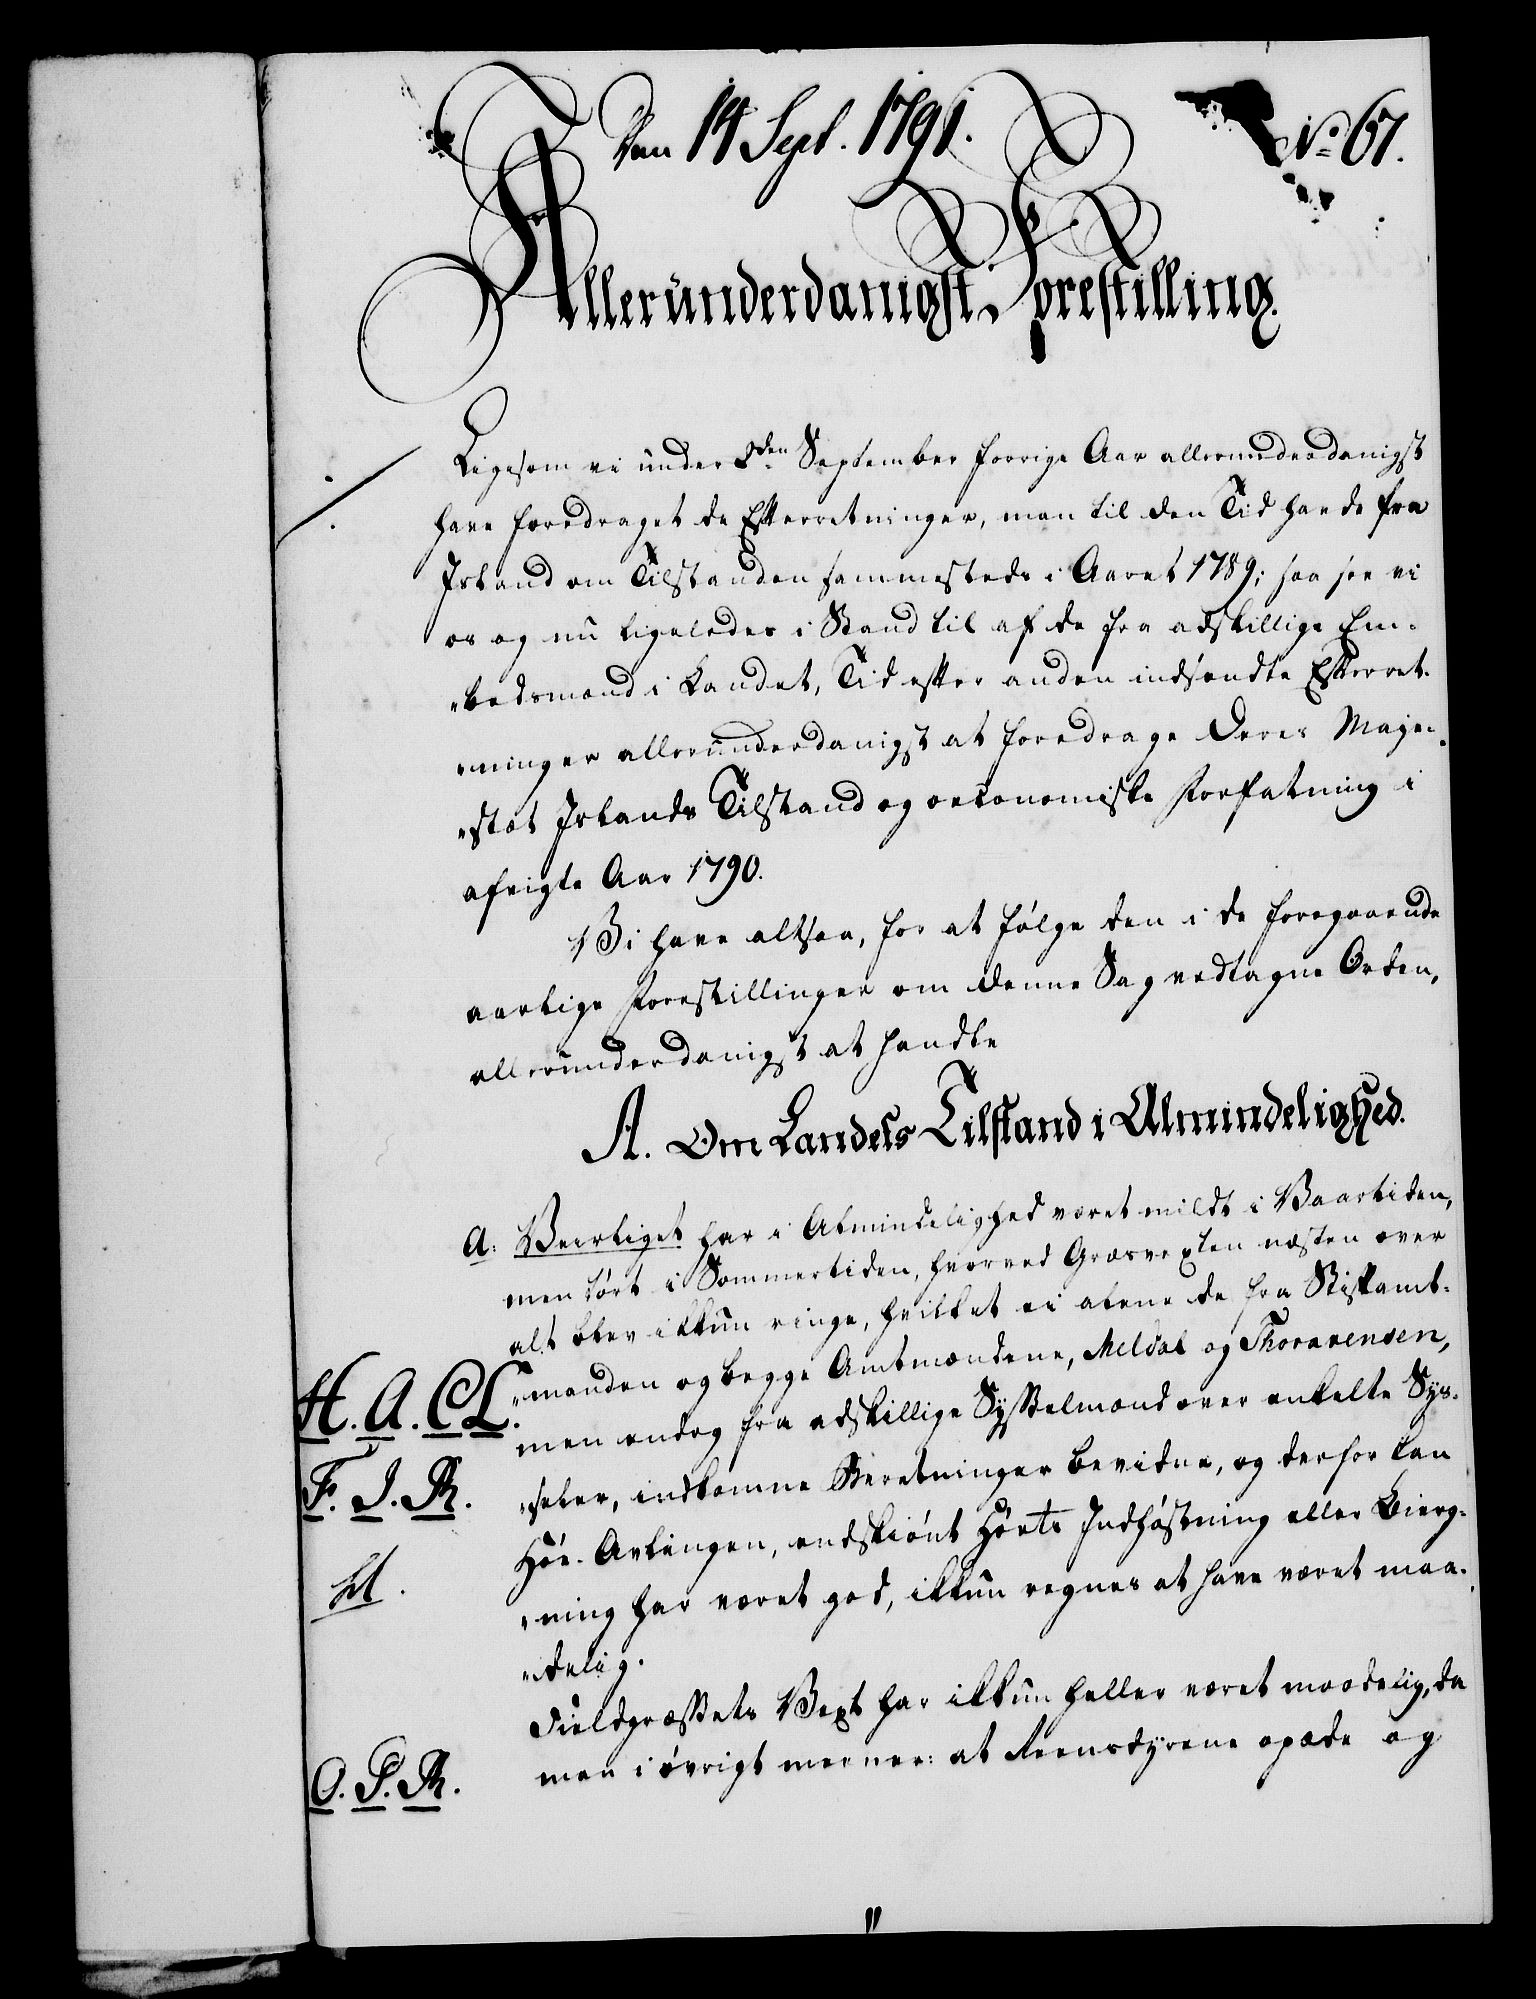 Den 14 Sept. 1791.
No 67.
Allerunderdanigst Forestilling.
Ligesom vi under 8den September forrige Aar allerunderdanigst
have foredraget de Efterretninger, man til den Tid havde fra
Island om Tilstanden sammesteds i Aaret 1789; saa see vi
os og nu ligeledes i Stand til af de fra adskillige Em-
bedsmænd i Landet, Tid efter anden indsendte Efterret-
ninger allerunderdanigst at foredrage Deres Maje-
stæt Islands Tilstand og oeconomiske Forfatning i
afvigte Aar 1790.
Vi have altsaa, for at følge den i de foregaaende
aarlige Forestillinger om denne Sag vedtagne Orden,
allerunderdanigst at handle
A. Om Landets Tilstand i Almindelighed.
a: Veirliget har i Almindelighed været mildt i Vaartiden,
men tørt i Sommertiden, hvorved Græsvexten næsten over
alt blev ikkun ringe, hvilket ei alene de fra Stiftamt-
manden og begge Amtmændene, Meldal og Thorarensen,
men endog fra adskillige Sysselmænd over enkelte Sys-
seler, indkomne Beretninger bevidne, og derfor kan
Høe-Avlingen, endskiønt Høets Indhøstning eller Bierg-
ning har været god, ikkun regnes at have været maa-
delig.
Fieldgræssets Vext har ikkun heller været maadelig, da
man i øvrigt meener: at Reensdyrene opæde og
H. A. C L.
F. J. R.
O. P. R.